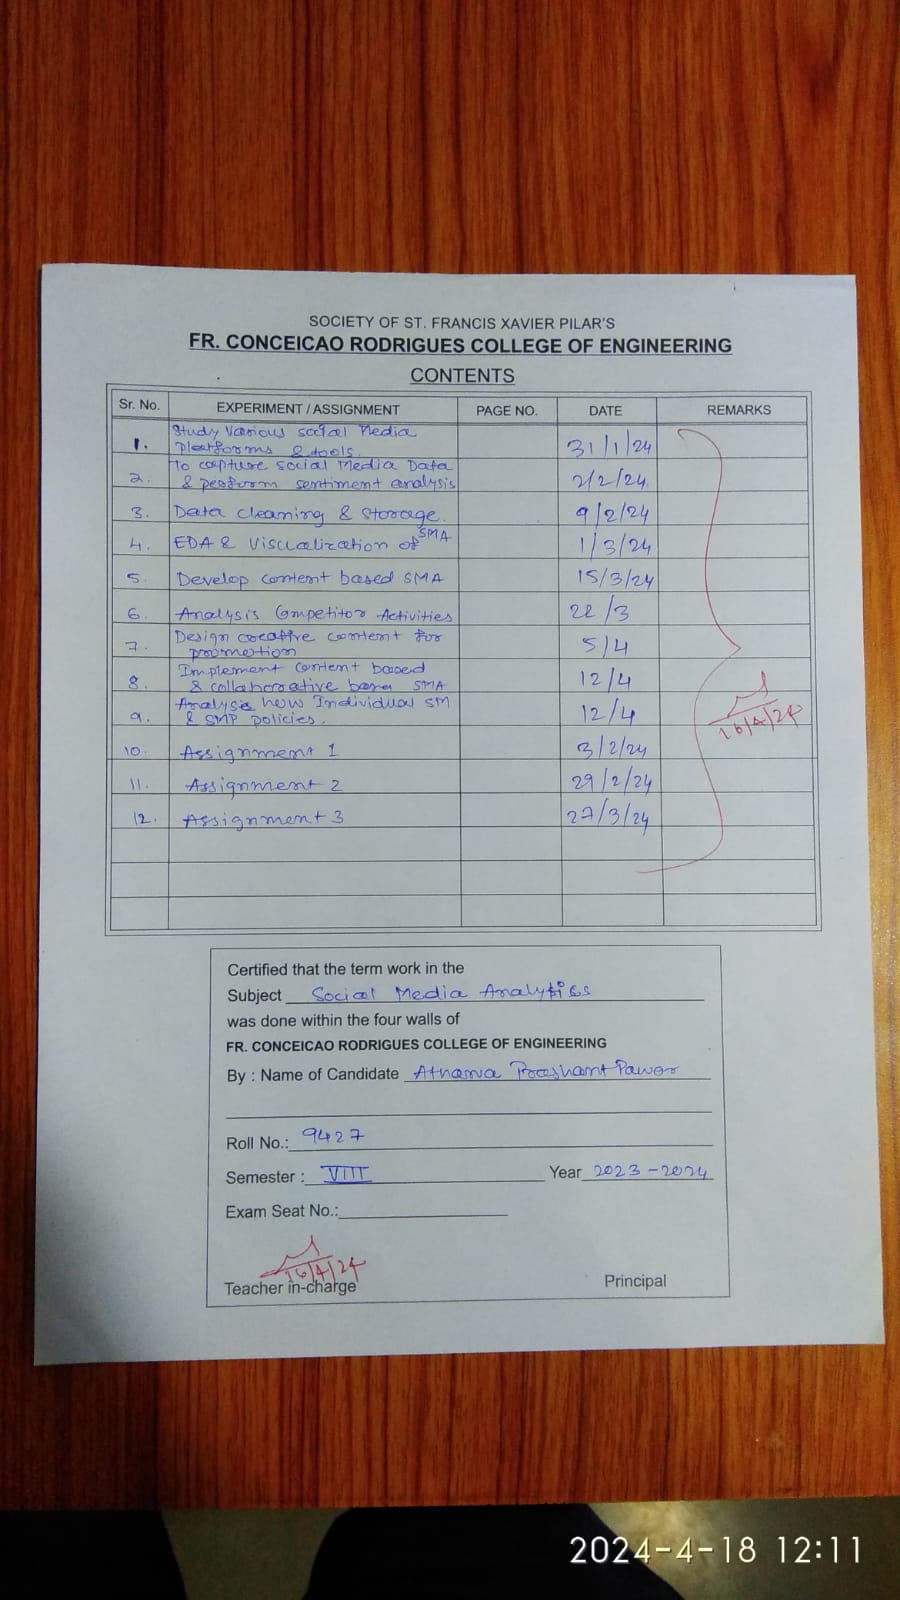 SOCIETY OF ST. FRANCIS XAVIER PILAR'S
FR. CONCEICAO RODRIGUES COLLEGE OF ENGINEERING
CONTENTS
Sr. No. EXPERIMENT / ASSIGNMENT PAGE NO. DATE REMARKS
1. Study Various social Media
platforms & tools. 31/1/24
2. To capture social Media Data
& perform sentiment analysis 2/2/24
3. Data cleaning & Storage. 9/2/24
4. EDA & Viscualization of SMA 1/3/24
5. Develop content based SMA 15/3/24
6. Analysis Competitor Activities 22/3
7. Design creative content for
promotion 5/4
8. Implement content based
& collaborative SMA 12/4
9. Analysis how Individual SM
& SMP policies. 12/4
16/4/24
10. Assignment 1 3/2/24
11. Assignment 2 29/2/24
12. Assignment 3 27/3/24
Certified that the term work in the
Subject Social Media Analytics
was done within the four walls of
FR. CONCEICAO RODRIGUES COLLEGE OF ENGINEERING
By : Name of Candidate Atharva Prashant Pawar
Roll No.: 9427
Semester : VIII Year 2023-2024
Exam Seat No.:
16/4/24
Teacher in-charge Principal
2024-4-18 12:11